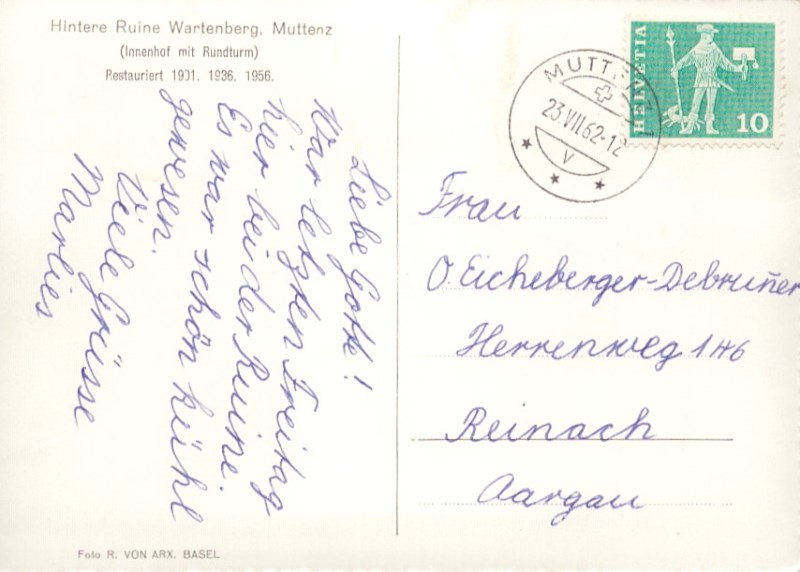 Hintere Ruine Wartenberg, Muttenz
(Innenhof mit Rundturm)
Restauriert 1931. 1936. 1956.
Liebe Gotte!
War letzten Freitag
hier bei der Ruine.
Es war schön kühl
gewesen.
Viele Grüsse
Marlies
Foto R. VON ARX. BASEL
MUTTENZ 1
23.VII.62-12
V
HELVETIA
10
Frau
O. Eicheberger-Debrunner
Herrenweg 146
Reinach
Aargau